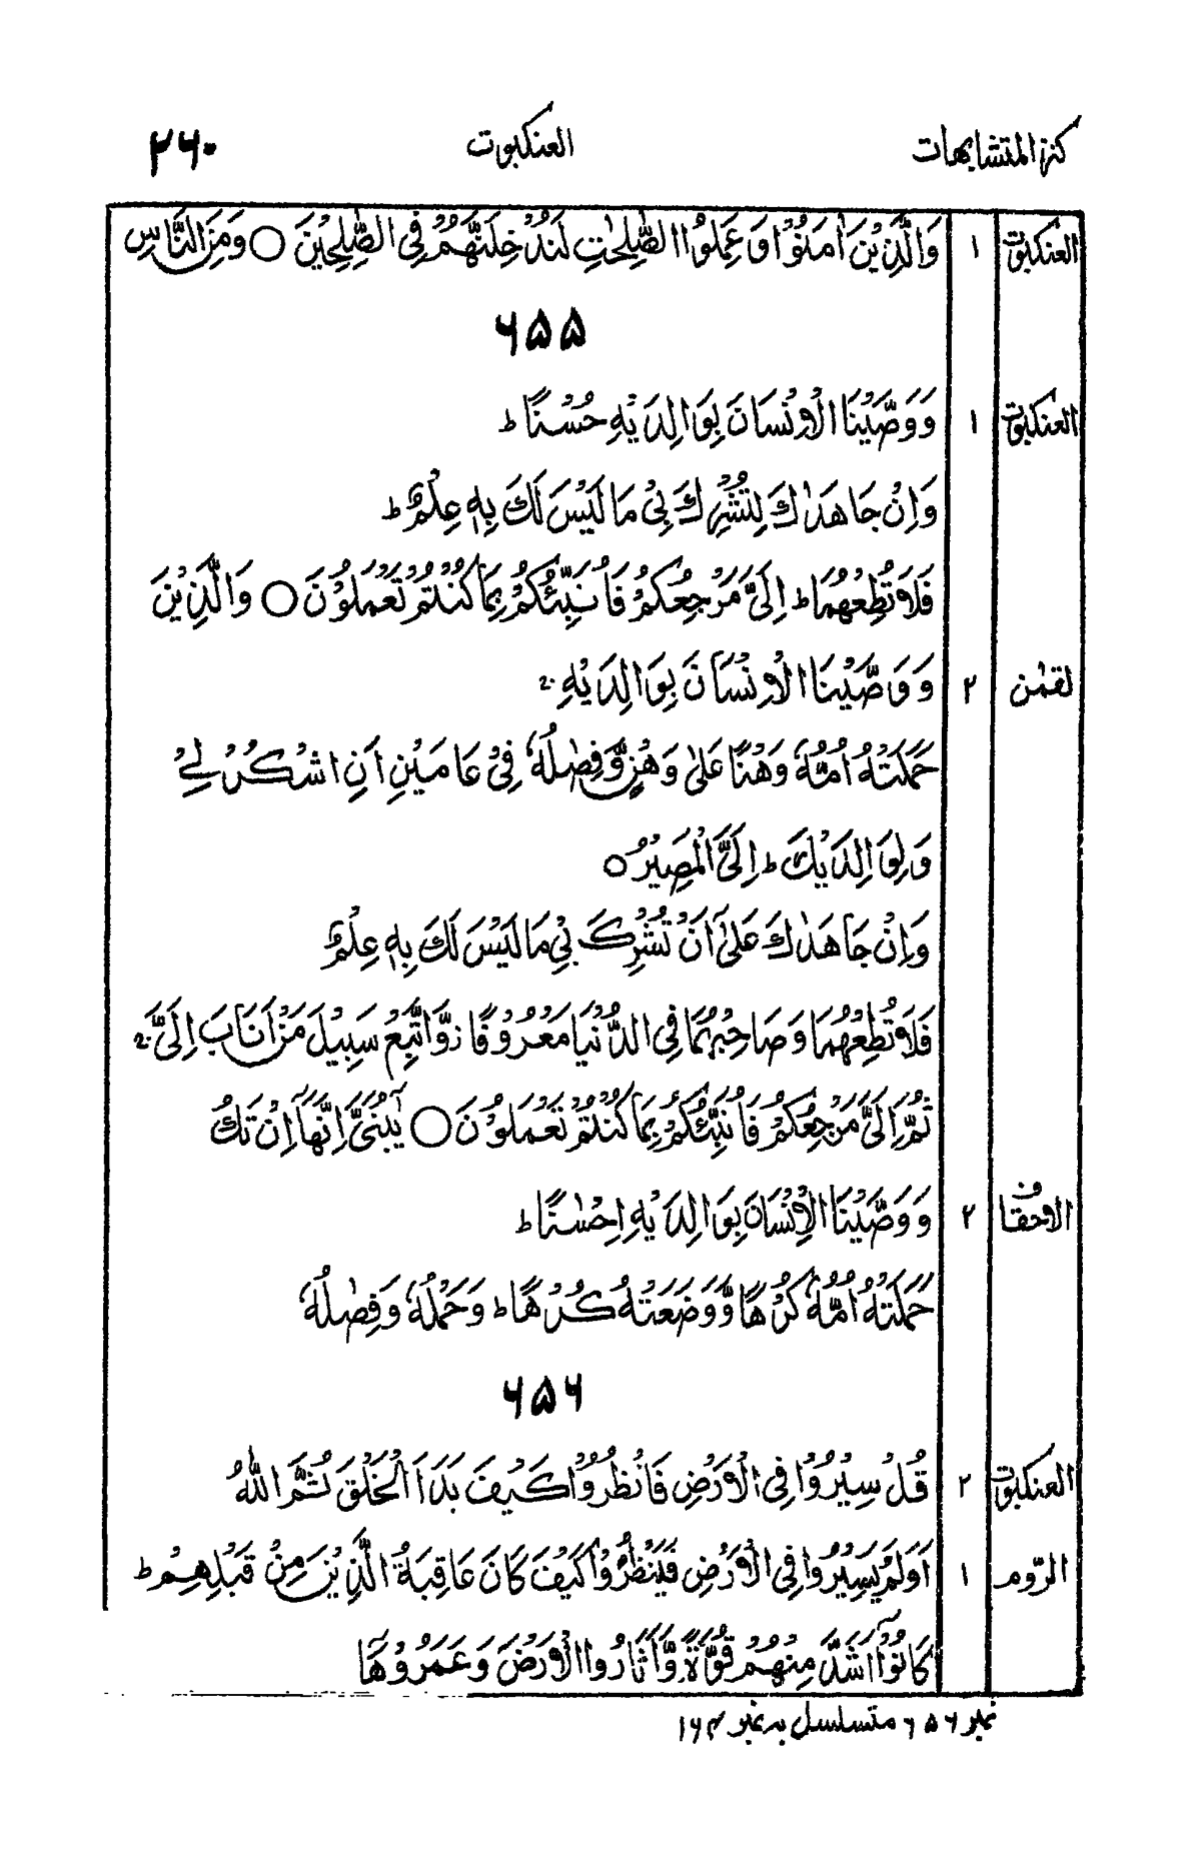 كنز المتشابهات العنكبوت ۲۶۰
العنكبوت ۱ وَالَّذِيْنَ اٰمَنُوْا وَ عَمِلُوا الصّٰلِحٰتِ لَنُدْخِلَنَّهُمْ فِي الصّٰلِحِيْنَ ○ وَمِنَ النَّاسِ
۶۵۵
العنكبوت ۱ وَوَصَّيْنَا الْاِنْسَانَ بِوَالِدَيْهِ حُسْنًا ؕ
وَاِنْ جَاهَدٰكَ لِتُشْرِكَ بِيْ مَا لَيْسَ لَكَ بِهٖ عِلْمٌ ؕ
فَلَا تُطِعْهُمَا ؕ اِلَيَّ مَرْجِعُكُمْ فَاُنَبِّئُكُمْ بِمَا كُنْتُمْ تَعْمَلُوْنَ ○ وَالَّذِيْنَ
لقمٰن ۲ وَوَصَّيْنَا الْاِنْسَانَ بِوَالِدَيْهِ ۚ
حَمَلَتْهُ اُمُّهٗ وَهْنًا عَلٰى وَهْنٍ وَّفِصٰلُهٗ فِيْ عَامَيْنِ اَنِ اشْكُرْ لِيْ
وَلِوَالِدَيْكَ ؕ اِلَيَّ الْمَصِيْرُ ○
وَاِنْ جَاهَدٰكَ عَلٰٓى اَنْ تُشْرِكَ بِيْ مَا لَيْسَ لَكَ بِهٖ عِلْمٌ
فَلَا تُطِعْهُمَا وَصَاحِبْهُمَا فِي الدُّنْيَا مَعْرُوْفًا ز وَّاتَّبِعْ سَبِيْلَ مَنْ اَنَابَ اِلَيَّ ۚ
ثُمَّ اِلَيَّ مَرْجِعُكُمْ فَاُنَبِّئُكُمْ بِمَا كُنْتُمْ تَعْمَلُوْنَ ○ يٰبُنَيَّ اِنَّهَآ اِنْ تَكُ
الاحقاف ۲ وَوَصَّيْنَا الْاِنْسَانَ بِوَالِدَيْهِ اِحْسٰنًا ؕ
حَمَلَتْهُ اُمُّهٗ كُرْهًا وَّوَضَعَتْهُ كُرْهًا ؕ وَحَمْلُهٗ وَفِصٰلُهٗ
۶۵۶
العنكبوت ۲ قُلْ سِيْرُوْا فِي الْاَرْضِ فَانْظُرُوْا كَيْفَ بَدَاَ الْخَلْقَ ثُمَّ اللّٰهُ
الرّوم ۱ اَوَلَمْ يَسِيْرُوْا فِي الْاَرْضِ فَيَنْظُرُوْا كَيْفَ كَانَ عَاقِبَةُ الَّذِيْنَ مِنْ قَبْلِهِمْ ؕ
كَانُوْٓا اَشَدَّ مِنْهُمْ قُوَّةً وَّاَثَارُوا الْاَرْضَ وَعَمَرُوْهَآ
نمبر ۶۵۶ متسلسل به نمبر ۱۶۴